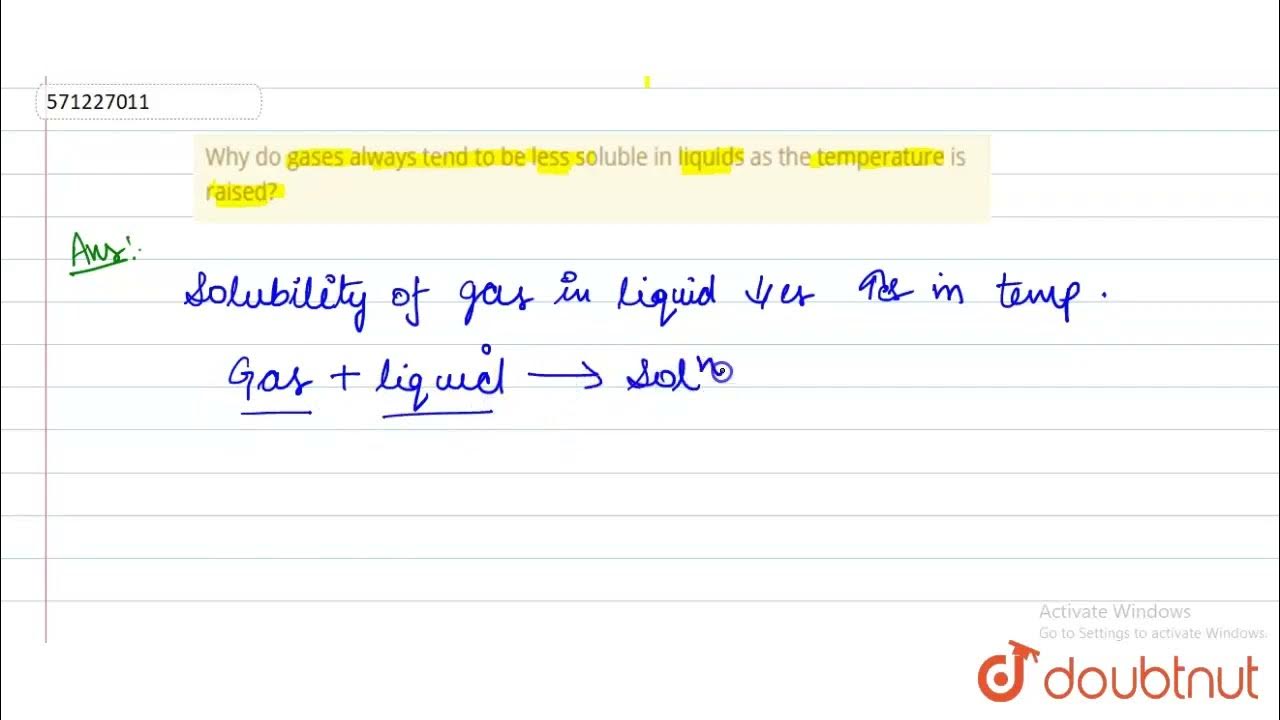 571227011
Why do gases always tend to be less soluble in liquids as the temperature is
raised?
Ans:
Solubility of gas in liquid ↓es ↑es in temp.
Gas + liquid → Solⁿ
Activate Windows
Go to Settings to activate Windows.
doubtnut